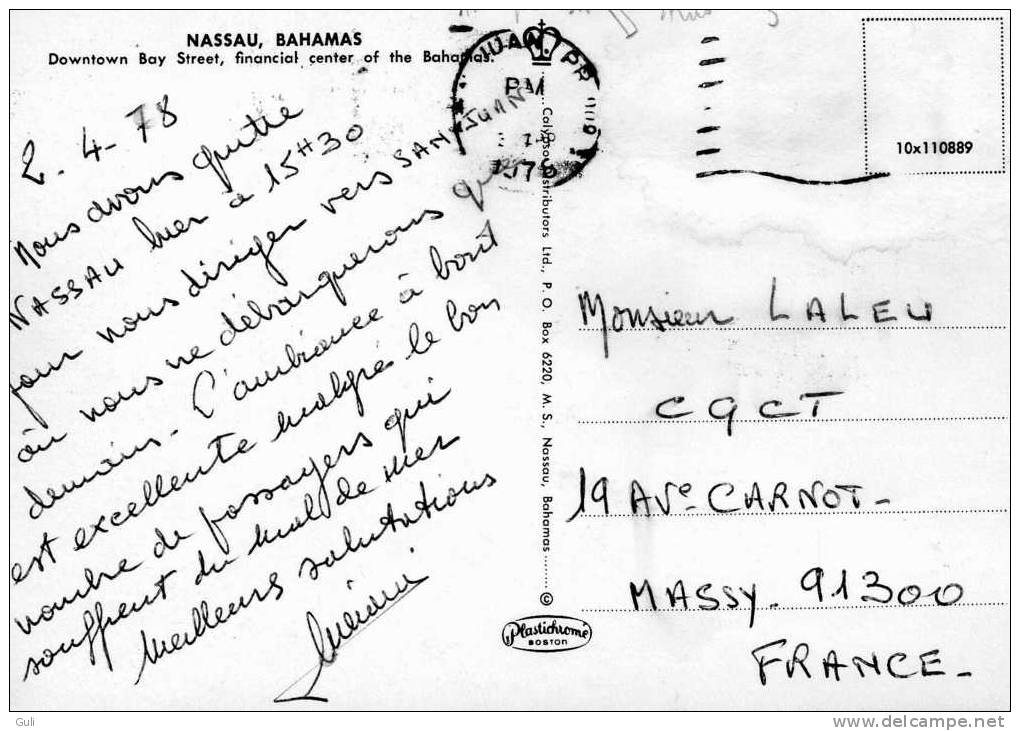 NASSAU, BAHAMAS
Downtown Bay Street, financial center of the Bahamas.
2.4-78
Nous avons quitté
NASSAU hier à 15H30
pour nous diriger vers SAN JUAN
où nous ne débarquerons que
demain - L'ambiance à bord
est excellente malgré le bon
nombre de passagers qui
souffrent du mal de mer
Meilleurs salutations
JUAN, PR
PM
1978
Calypso Distributors Ltd., P. O. Box 6220, M. S., Nassau, Bahamas
©
Plastichrome
BOSTON
10x110889
Monsieur LALEU
CGCT
19 AVe CARNOT-
MASSY. 91300
FRANCE-
Guli
http://www.delcampe.net